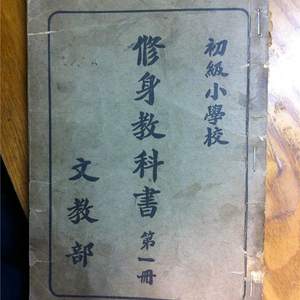 初級小學校
修身教科書 第一冊
文教部